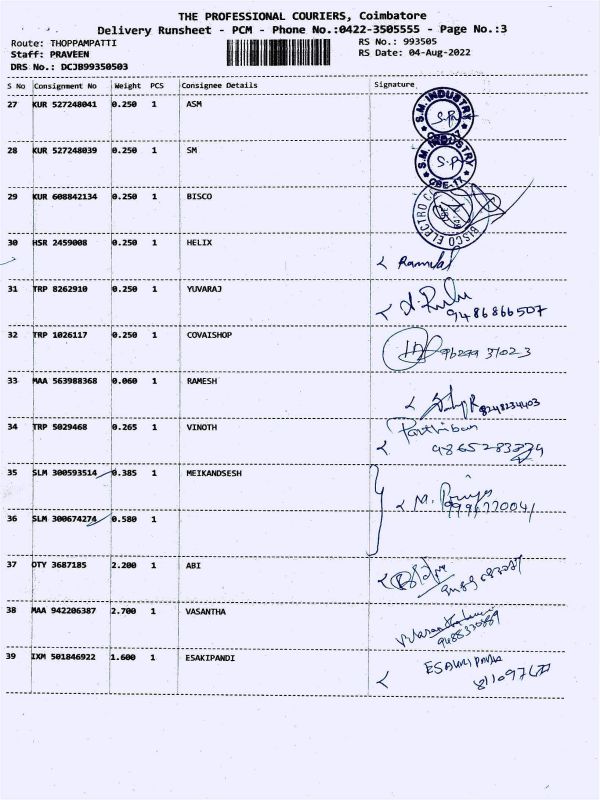 THE PROFESSIONAL COURIERS, Coimbatore
Delivery Runsheet - PCM - Phone No.:0422-3505555 - Page No.:3
Route: THOPPAMPATTI RS No.: 993505
Staff: PRAVEEN RS Date: 04-Aug-2022
DRS No.: DCJB99350503
S No Consignment No Weight PCS Consignee Details Signature
27 KUR 527248041 0.250 1 ASM S.M. INDUSTRY
28 KUR 527248039 0.250 1 SM S.M. INDUSTRY S.P CBE-17
29 KUR 608842134 0.250 1 BISCO BISCO ELECTRO
30 HSR 2459008 0.250 1 HELIX
31 TRP 8262910 0.250 1 YUVARAJ 9486866507
32 TRP 1026117 0.250 1 COVAISHOP
33 MAA 563988368 0.060 1 RAMESH 8248234403
34 TRP 5029468 0.265 1 VINOTH Parthiban
35 SLM 300593514 0.385 1 MEIKANDSESH
36 SLM 300674274 0.580 1
37 OTY 3687185 2.200 1 ABI
38 MAA 942206387 2.700 1 VASANTHA
39 IXM 501846922 1.600 1 ESAKIPANDI